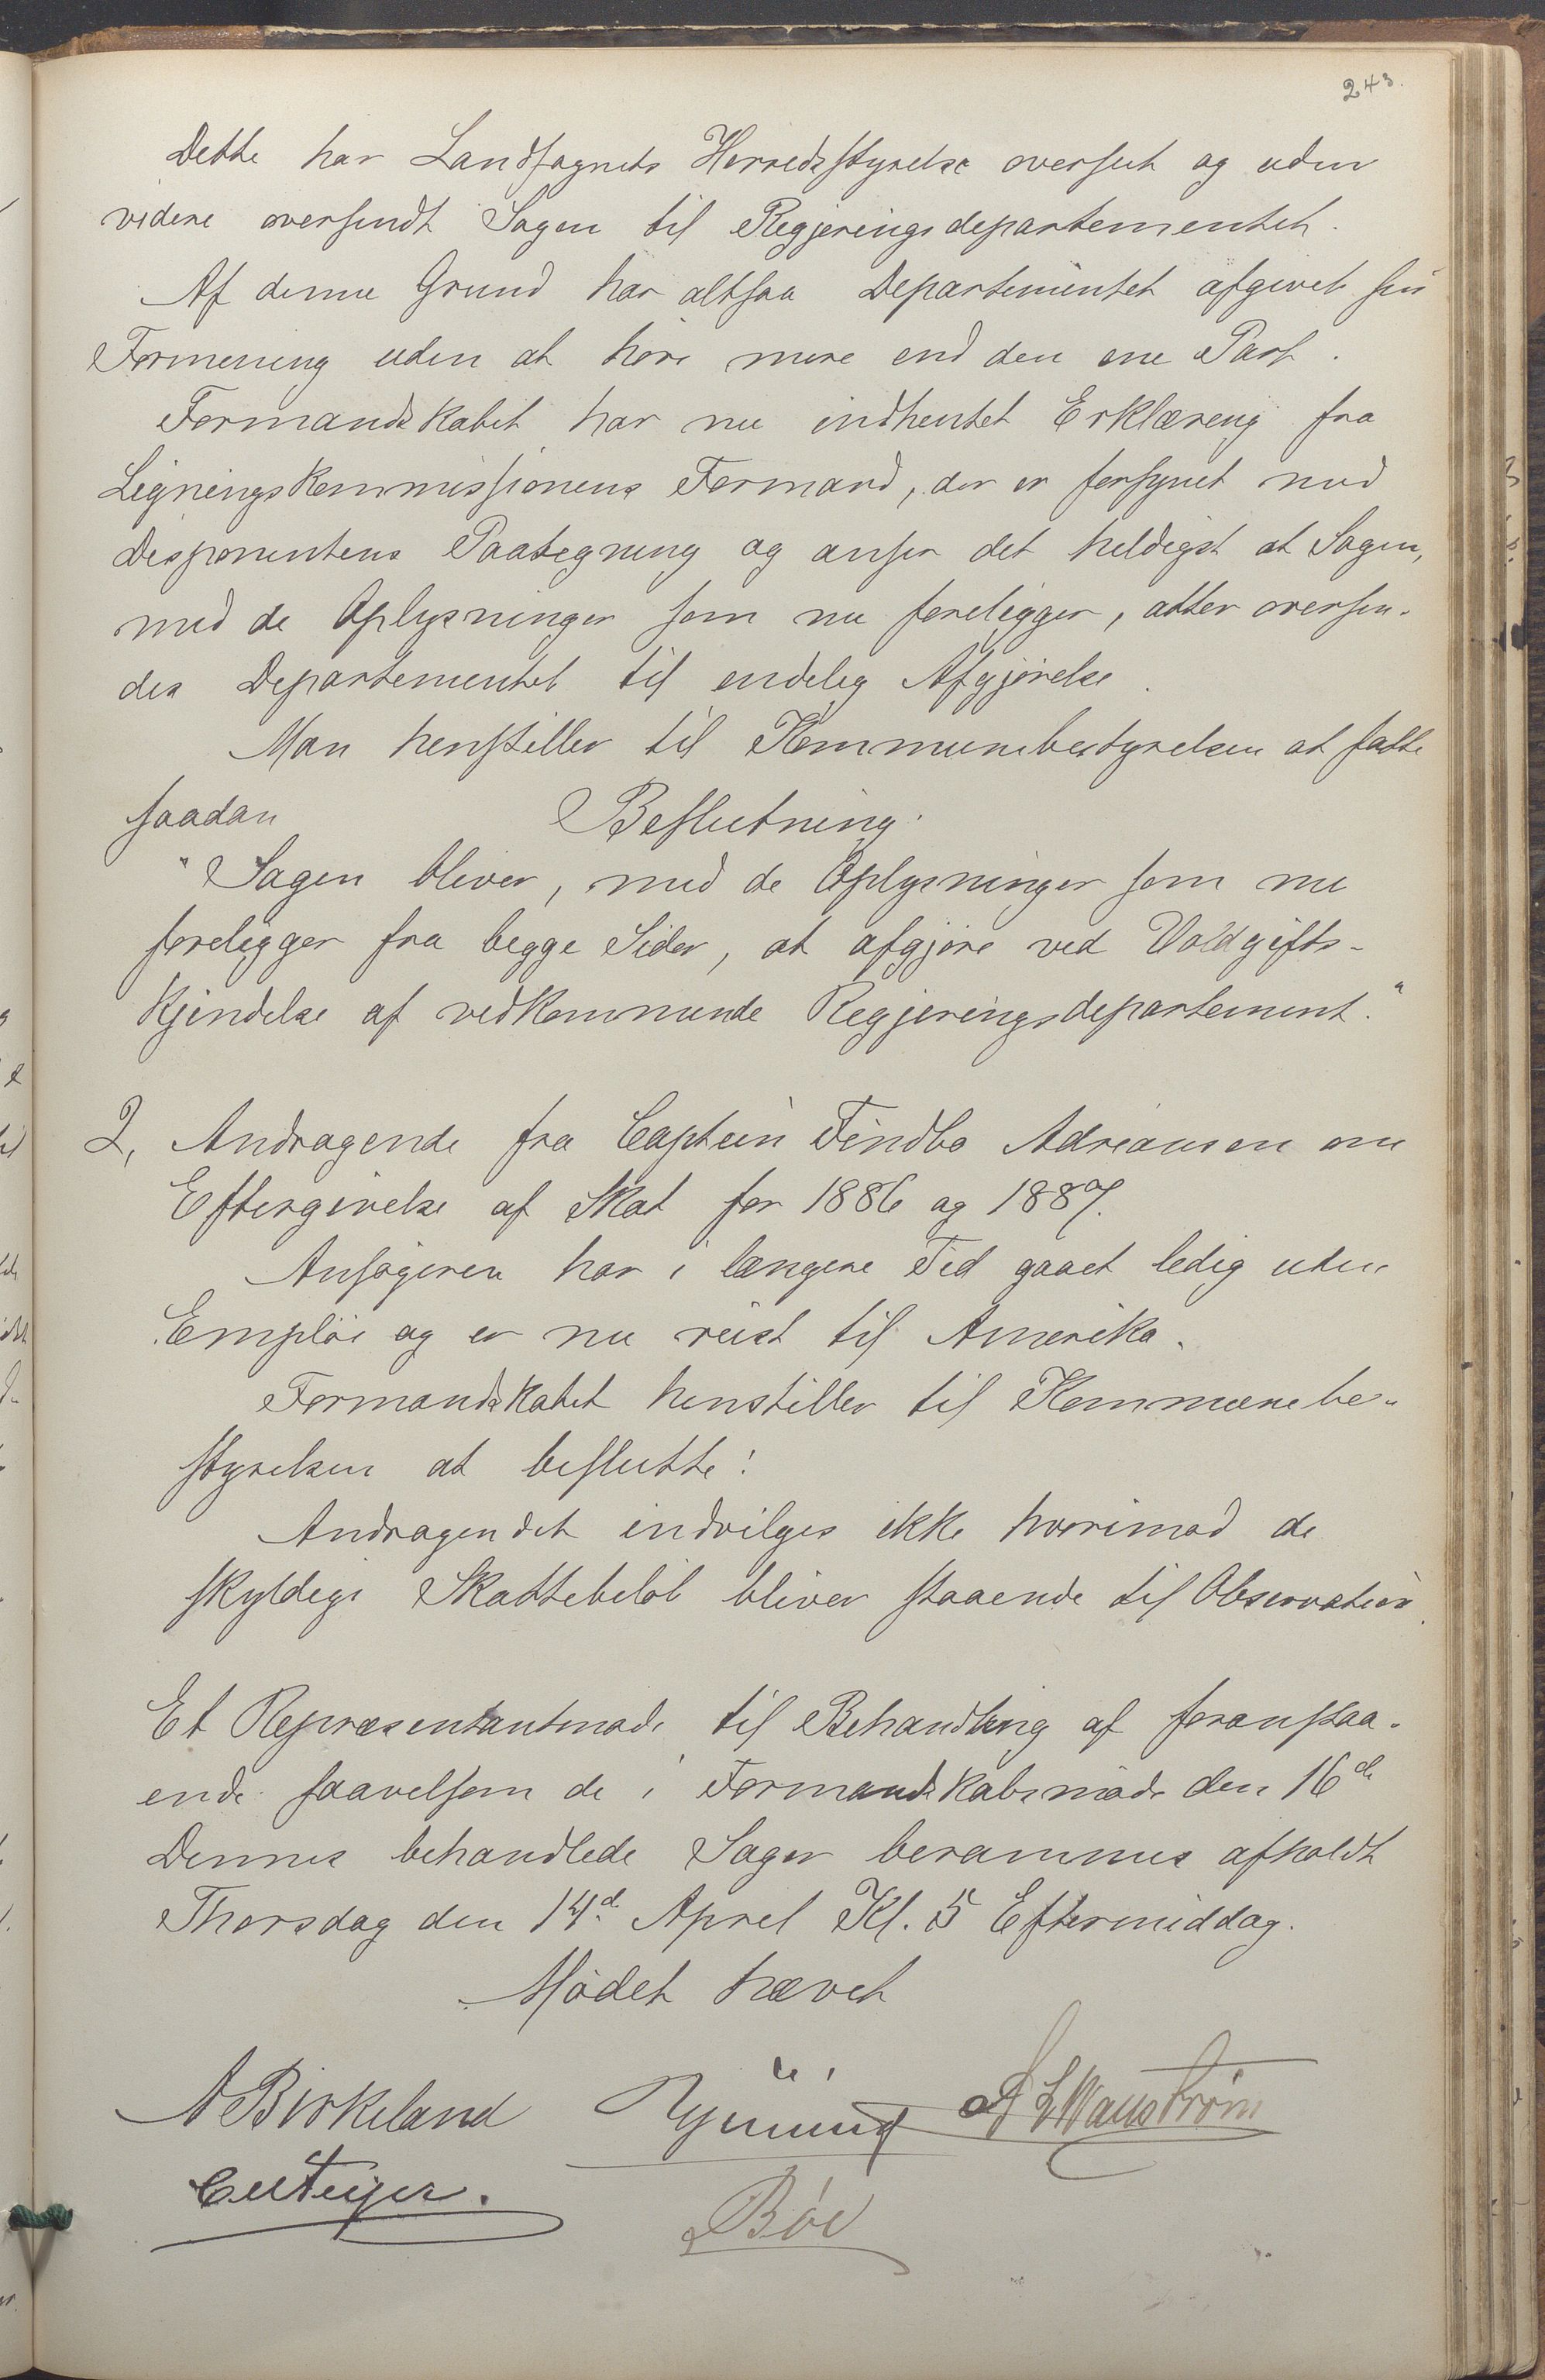 243.
Dette har Landsognets Herredsstyrelse overseet og uden
videre oversendt Sagen til Regjeringsdepartementet.
Af denne Grund har altsaa Departementet afgivet sin
Formening uden at høre mere end den ene Part.
Formandskabet har nu indhentet Erklæring fra
Ligningskommissionens Formand, der er forsynet med
Disponentens Paategning og anser det heldigst at Sagen,
med de Oplysninger som nu foreligger, atter oversen-
des Departementet til endelig Afgjørelse.
Man henstiller til Kommunebestyrelsen at fatte
saadan Beslutning.
"Sagen bliver, med de Oplysninger som nu
foreligger fra begge Sider, at afgjøre ved Voldgifts-
kjendelse af vedkommende Regjeringsdepartement."
2, Andragende fra Captein Findbo Adriansen om
Eftergivelse af Skat for 1886 og 1887.
Ansøgeren har i længere Tid gaaet ledig uden
Empløi og er nu reist til Amerika.
Formandskabet henstiller til Kommunebe-
styrelsen at beslutte:
Andragendet indvilges ikke hvorimod de
skyldige Skattebeløb bliver staaende til Observation.
Et Repræsentantmøde til Behandling af foranstaa-
ende saavelsom de i Formandskabsmøde den 16de
Dennes behandlede Sager berammes afholdt
Thorsdag den 14de April Kl. 5 Eftermiddag.
Mødet hævet
A Birkeland
Bøe